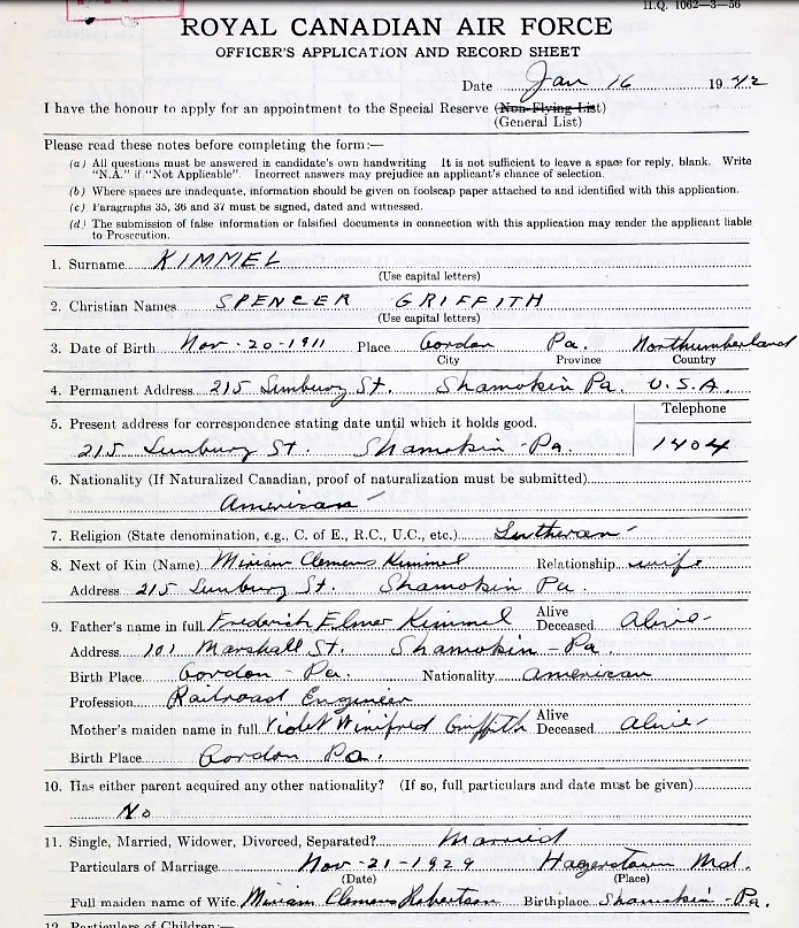 H.Q. 1062—3—56
ROYAL CANADIAN AIR FORCE
OFFICER'S APPLICATION AND RECORD SHEET
Date Jan 16 1942
I have the honour to apply for an appointment to the Special Reserve (Non-Flying List)
(General List)
Please read these notes before completing the form:—
(a) All questions must be answered in candidate's own handwriting It is not sufficient to leave a space for reply, blank. Write
"N.A." if "Not Applicable". Incorrect answers may prejudice an applicant's chance of selection.
(b) Where spaces are inadequate, information should be given on foolscap paper attached to and identified with this application.
(c) Paragraphs 35, 36 and 37 must be signed, dated and witnessed.
(d) The submission of false information or falsified documents in connection with this application may render the applicant liable
to Prosecution.
1. Surname KIMMEL
(Use capital letters)
2. Christian Names SPENCER GRIFFITH
(Use capital letters)
3. Date of Birth Nov-20-1911 Place Gordon Pa. Northumberland
City Province Country
4. Permanent Address 215 Sunbury St. Shamokin Pa. U.S.A.
Telephone
5. Present address for correspondence stating date until which it holds good.
215 Sunbury St. Shamokin - Pa. 1404
6. Nationality (If Naturalized Canadian, proof of naturalization must be submitted)
American -
7. Religion (State denomination, e.g., C. of E., R.C., U.C., etc.) Lutheran -
8. Next of Kin (Name) Miriam Clemens Kimmel Relationship wife
Address 215 Sunbury St. Shamokin Pa.
9. Father's name in full Frederick Elmer Kimmel Alive Deceased Alive -
Address 101 Marshall St. Shamokin - Pa.
Birth Place Gordon - Pa. Nationality American
Profession Railroad Engineer
Mother's maiden name in full Violet Winifred Griffith Alive Deceased Alive -
Birth Place Gordon Pa.
10. Has either parent acquired any other nationality? (If so, full particulars and date must be given)
No
11. Single, Married, Widower, Divorced, Separated? Married
Particulars of Marriage Nov-21-1929 Hagerstown Md.
(Date) (Place)
Full maiden name of Wife Miriam Clemens Robertson Birthplace Shamokin - Pa.
12. Particulars of Children:—